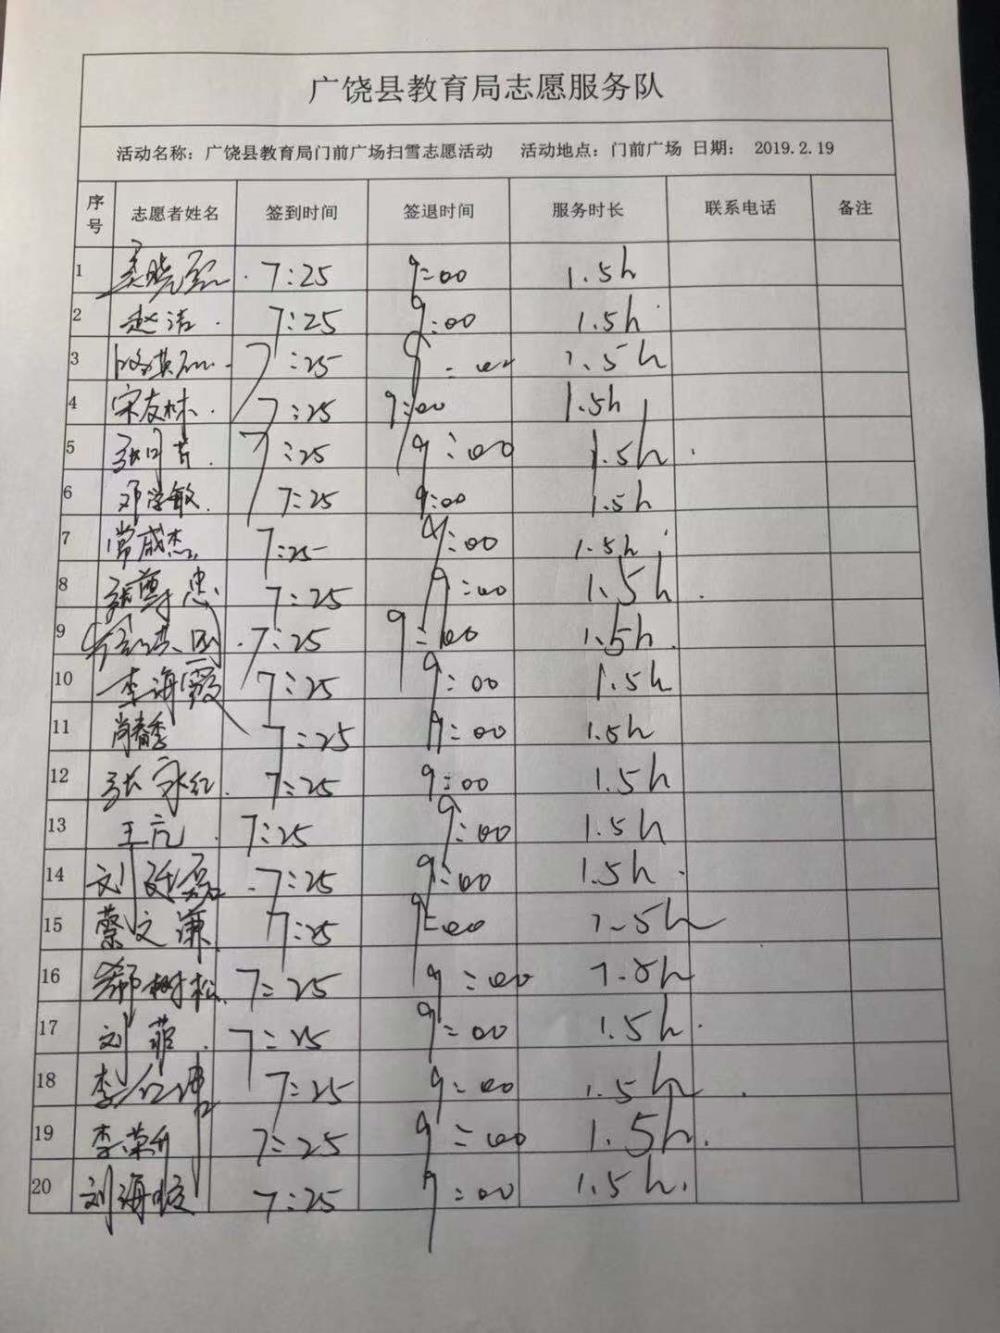 广饶县教育局志愿服务队
活动名称：广饶县教育局门前广场扫雪志愿活动 活动地点：门前广场 日期： 2019.2.19
序号 志愿者姓名 签到时间 签退时间 服务时长 联系电话 备注
1 7:25 9:00 1.5h
2 赵洁 7:25 9:00 1.5h
3 7:25 9:00 1.5h
4 宋友林 7:25 9:00 1.5h
5 7:25 9:00 1.5h
6 邓学敏 7:25 9:00 1.5h
7 常成杰 7:25 9:00 1.5h
8 张尊忠 7:25 9:00 1.5h
9 7:25 9:00 1.5h
10 李海霞 7:25 9:00 1.5h
11 肖春季 7:25 9:00 1.5h
12 张永红 7:25 9:00 1.5h
13 王亮 7:25 9:00 1.5h
14 刘延磊 7:25 9:00 1.5h
15 蔡文谦 7:25 9:00 1.5h
16 树松 7:25 9:00 1.5h
17 刘菲 7:25 9:00 1.5h
18 李 7:25 9:00 1.5h
19 李荣升 7:25 9:00 1.5h
20 刘海波 7:25 9:00 1.5h